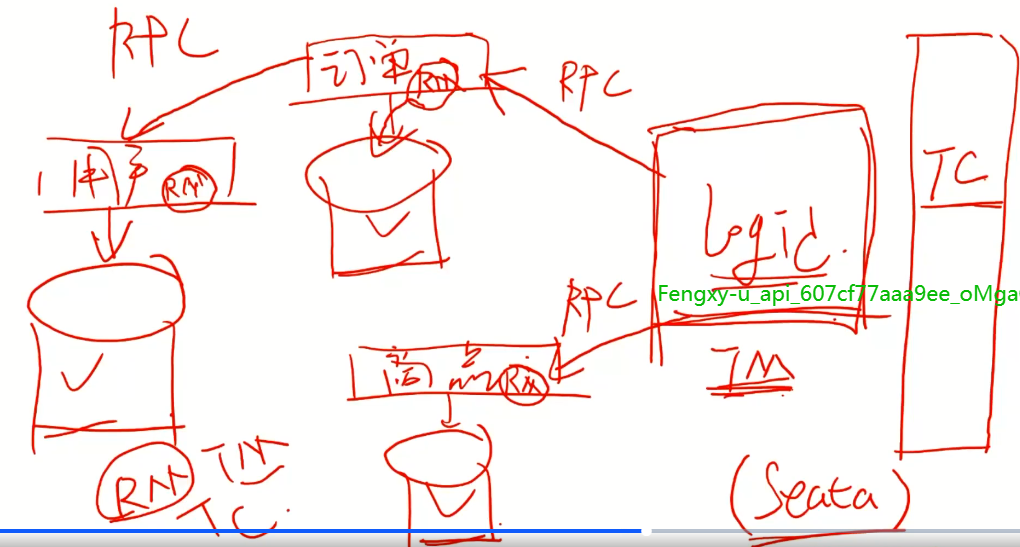 RPC
订单
RM
RPC
库存
RM
TC
logic.
Fengxy-u_api_607cf77aaa9ee_oMga
RPC
商品
RM
TM
RM
TM
TC.
(Seata)